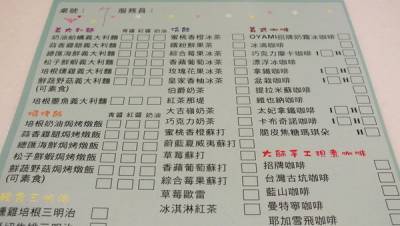 桌號： 服務員：
義大利麵 青醬 紅醬 奶油
奶油蛤蠣義大利麵
蒜香雞腿義大利麵
總匯海鮮義大利麵
松子鮮蝦義大利麵
培根燻雞義大利麵
鮮蔬野菇義大利麵
(可素食)
培根墨魚義大利麵
焗烤飯 青醬 紅醬 奶油
培根奶油焗烤燉飯
蒜香雞腿焗烤燉飯
總匯海鮮焗烤燉飯
松子鮮蝦焗烤燉飯
鮮蔬野菇焗烤燉飯
(可素食)
燻雞培根三明治
三明治
蜜桃香橙冰茶
繽紛鮮果茶
綜合莓果冰茶
香蘋葡萄冰茶
玫瑰花果冰茶
皇家香柚冰茶
伯爵奶茶
伯爵紅茶
紅茶那堤
大吉嶺奶茶
巧克力奶茶
蜜桃香橙蘇打
蔚藍夏威夷蘇打
草莓蘇打
香蘋葡萄蘇打
綜合莓果蘇打
草莓歐雷
冰淇淋紅茶
義式咖啡
OYAMI招牌奶霜冰咖啡
冰滴咖啡
巧克力摩卡咖啡
漂浮冰咖啡
拿鐵咖啡
盆栽咖啡
提拉米蘇咖啡
維也納咖啡
太妃拿鐵咖啡
卡布奇諾咖啡
脆皮焦糖瑪琪朵
大師手工現煮咖啡
招牌咖啡
台灣古坑咖啡
藍山咖啡
曼特寧咖啡
耶加雪飛咖啡